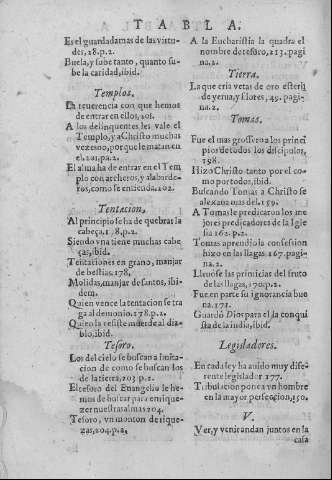 TABLA.
Es el guardadamas de las virtu-
des, 28. p. 2.
Buela, y sube tanto, quanto su-
be la caridad, ibid.
Templos.
La reuerencia con que hemos
de entrar en ellos, 201.
A los delinquentes les vale el
Templo, y a Christo muchas
vezes no, porque le matan en
el. 201. pa. 2.
El alma ha de entrar en el Tem
plo con archeros, y alabarde-
ros, como se entienda. 202.
Tentacion.
Al principio se ha de quebrar la
cabeça, 178. p. 2.
Siendo vna tiene muchas cabe-
ças, ibid.
Tentaciones en grano, manjar
de bestias. 178.
Molidas, manjar de santos, ibi-
dem.
Quien vence la tentacion se tra
ga al demonio. 178. p. 2.
Quien la resiste muerde al dia-
blo, ibid.
Tesoro.
Los del cielo se buscan a imita-
cion de como se buscan los
de la tierra, 203. p. 2.
El tesoro del Euangelio le he-
mos de buscar para enrique-
zer nuestras almas 204.
Tesoro, vn monton de rique-
zas, 204. p. 2.
A la Eucharistia la quadra el
nombre de tesoro, 213. pagi
na. 2.
Tierra.
La que cria vetas de oro esteril
de yerua, y flores, 49. pagi-
na. 2.
Tomas.
Fue el mas grossero a los princi
pios de todos los discipulos,
158.
Hizo Christo tanto por el co-
mo por todos, ibid.
Buscando Tomas a Christo se
alexaua mas del. 159.
A Tomas le predicaron los me
jores predicadores de la Igle
sia 162. p. 2.
Tomas aprendio la confession
hizo en las llagas. 167. pagi-
na. 2.
Lleuóse las primicias del fruto
de las llagas, 170. p. 2.
Fue en parte su ignorancia bue
na. 171.
Guardó Dios para el la conqui
sta de la india, ibid.
Legisladores.
En cada ley ha auido muy dife-
rente legislador 177.
Tribulacion pone a vn hombre
en la mayor perfeccion, 150.
V.
Ver, y venir andan juntos en la
casa